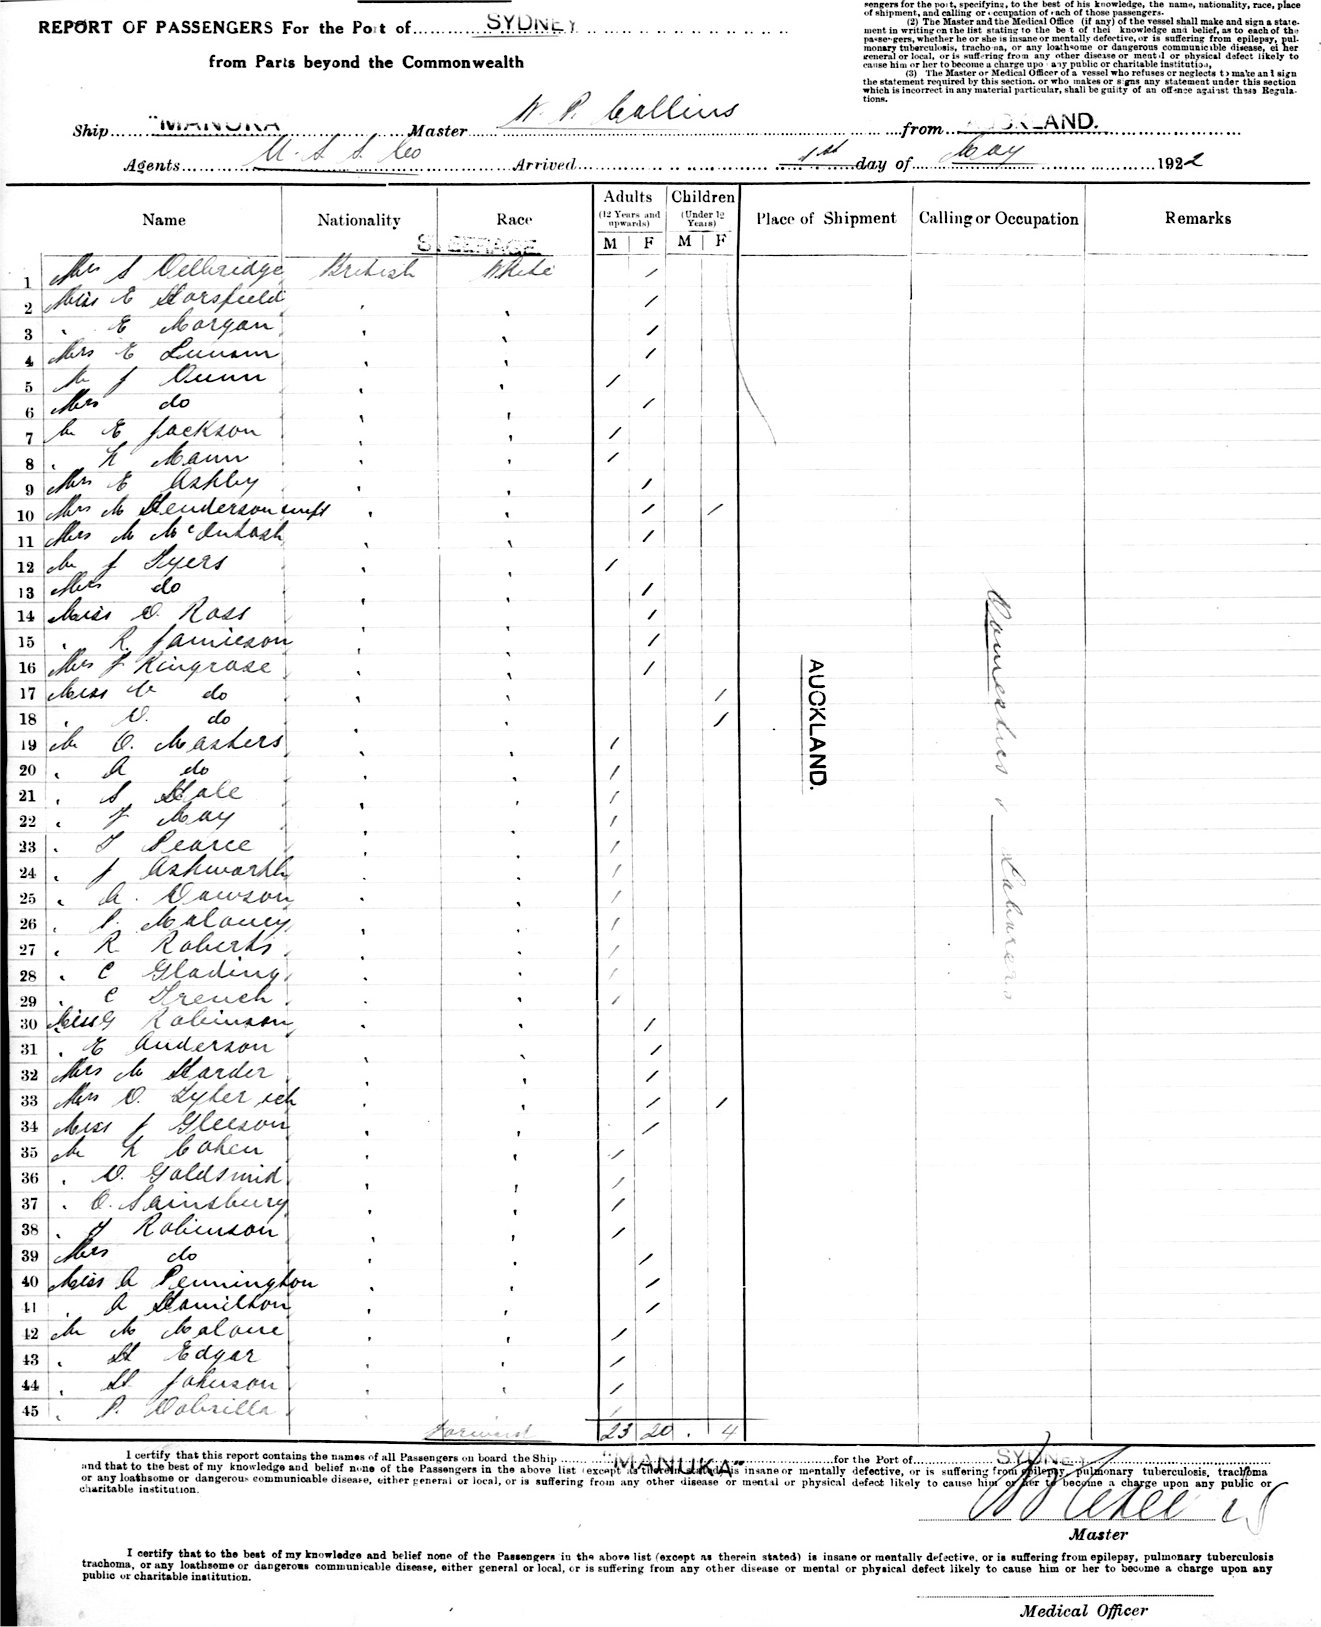 sengers for the port, specifying, to the best of his knowledge, the name, nationality, race, place
of shipment, and calling or occupation of each of those passengers.
(2) The Master and the Medical Office (if any) of the vessel shall make and sign a state-
ment in writing on the list stating to the best of their knowledge and belief, as to each of the
passengers, whether he or she is insane or mentally defective, or is suffering from epilepsy, pul-
monary tuberculosis, trachoma, or any loathsome or dangerous communicible disease, either
general or local, or is suffering from any other disease or mental or physical defect likely to
cause him or her to become a charge upon any public or charitable institution,
(3) The Master or Medical Officer of a vessel who refuses or neglects to make and sign
the statement required by this section, or who makes or signs any statement under this section
which is incorrect in any material particular, shall be guilty of an offence against these Regula-
tions.
REPORT OF PASSENGERS For the Port of SYDNEY
from Parts beyond the Commonwealth
Ship "MANUKA" Master W. P. Collins from AUCKLAND.
Agents U. S. S. Co Arrived 1st day of May 1922
Name Nationality Race Adults (12 Years and upwards) M F Children (Under 12 Years) M F Place of Shipment Calling or Occupation Remarks
STEERAGE
1 Mrs S Delbridge British White /
2 Miss E Horsfield ' ' /
3 " E Morgan ' ' /
4 Mrs E Lunam ' ' /
5 Mr J Dunn ' ' /
6 Mrs do ' ' /
7 Mr E Jackson ' ' /
8 " H Mann ' ' /
9 Mrs E Ashby ' ' /
10 Mrs M Henderson & inft ' ' / /
11 Mrs M McIntosh ' ' /
12 Mr J Tyers ' ' /
13 Mrs do ' ' /
14 Miss D Ross ' ' /
15 " R Jamieson ' ' /
16 Mrs J Ringrose ' ' /
17 Miss do ' ' /
18 " D. do ' ' /
19 Mr O. Masters ' ' /
20 " A do ' ' /
21 " S Hale ' ' /
22 " J May ' ' /
23 " T Pearce ' ' /
24 " J Ashworth ' ' /
25 " A. Dawson ' ' /
26 " P. Maloney ' ' /
27 " R Roberts ' ' /
28 " C Glading ' ' /
29 " C French ' ' /
30 Miss G Robinson ' ' /
31 " E Anderson ' ' /
32 Mrs M Harder ' ' /
33 Mrs O. Tyler & ch ' ' / /
34 Miss J Gleeson ' ' /
35 Mr H Cohen ' ' /
36 " D. Goldsmid ' ' /
37 " O. Sainsbury ' ' /
38 " J Robinson ' ' /
39 Mrs do ' ' /
40 Miss A Pennington ' ' /
41 " A Hamilton ' ' /
42 Mr M Malone ' ' /
43 " H Edgar ' ' /
44 " H Johnson ' ' /
45 " P. ' ' /
Forward 23 20 . 4
AUCKLAND.
Domestics & Labourers
I certify that this report contains the names of all Passengers on board the Ship "MANUKA" for the Port of SYDNEY
and that to the best of my knowledge and belief none of the Passengers in the above list (except as therein stated) is insane or mentally defective, or is suffering from epilepsy, pulmonary tuberculosis, trachoma
or any loathsome or dangerous communicable disease, either general or local, or is suffering from any other disease or mental or physical defect likely to cause him or her to become a charge upon any public or
charitable institution.
Master
I certify that to the best of my knowledge and belief none of the Passengers in the above list (except as therein stated) is insane or mentally defective, or is suffering from epilepsy, pulmonary tuberculosis
trachoma, or any loathsome or dangerous communicable disease, either general or local, or is suffering from any other disease or mental or physical defect likely to cause him or her to become a charge upon any
public or charitable institution.
Medical Officer